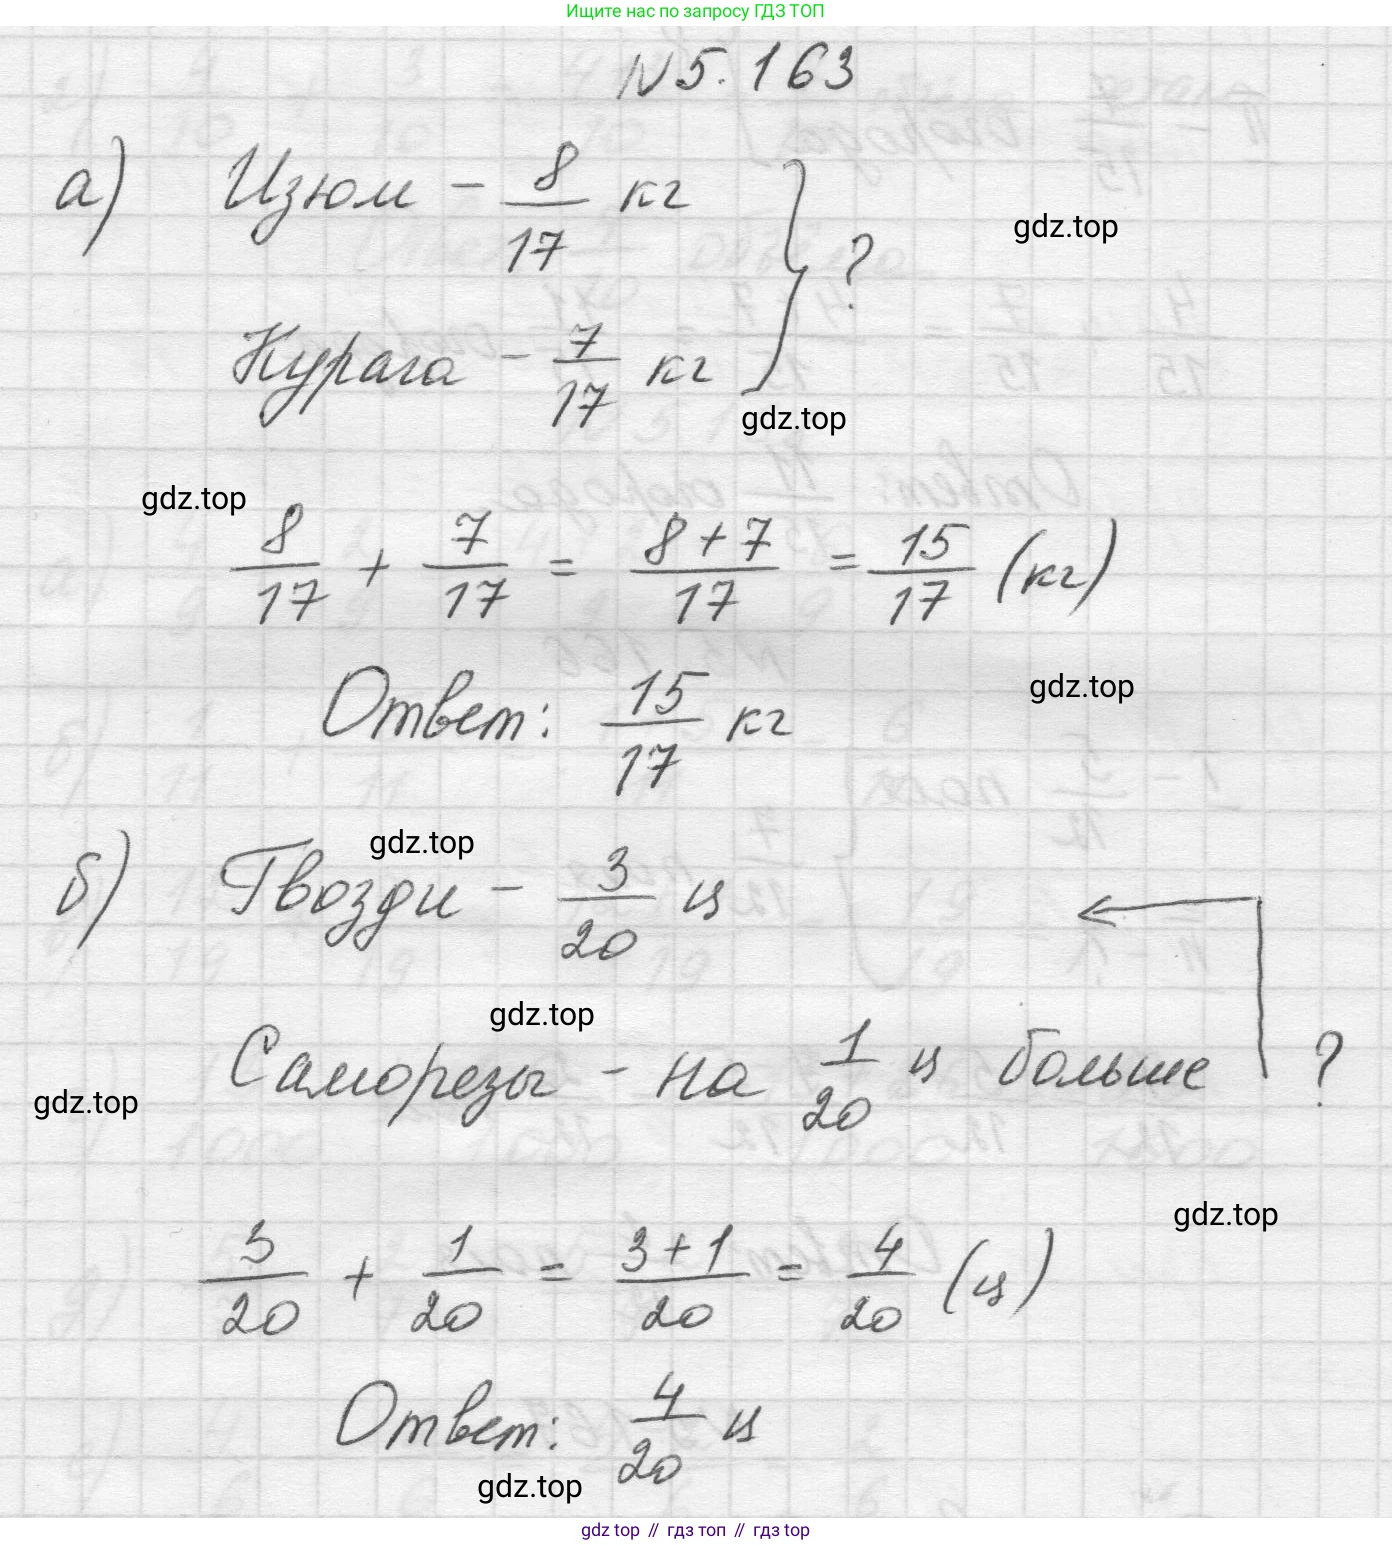 Ищите нас по запросу ГДЗ ТОП
N 5.163
а) Изюм - 8/17 кг
gdz.top
} ?
Курага - 7/17 кг
gdz.top
gdz.top
8/17 + 7/17 = (8+7)/17 = 15/17 (кг)
Ответ: 15/17 кг
gdz.top
gdz.top
б) Гвозди - 3/20 ц
gdz.top
Саморезы - на 1/20 ц больше ?
gdz.top
gdz.top
3/20 + 1/20 = (3+1)/20 = 4/20 (ц)
Ответ: 4/20 ц
gdz.top
gdz top // гдз топ // гдз top